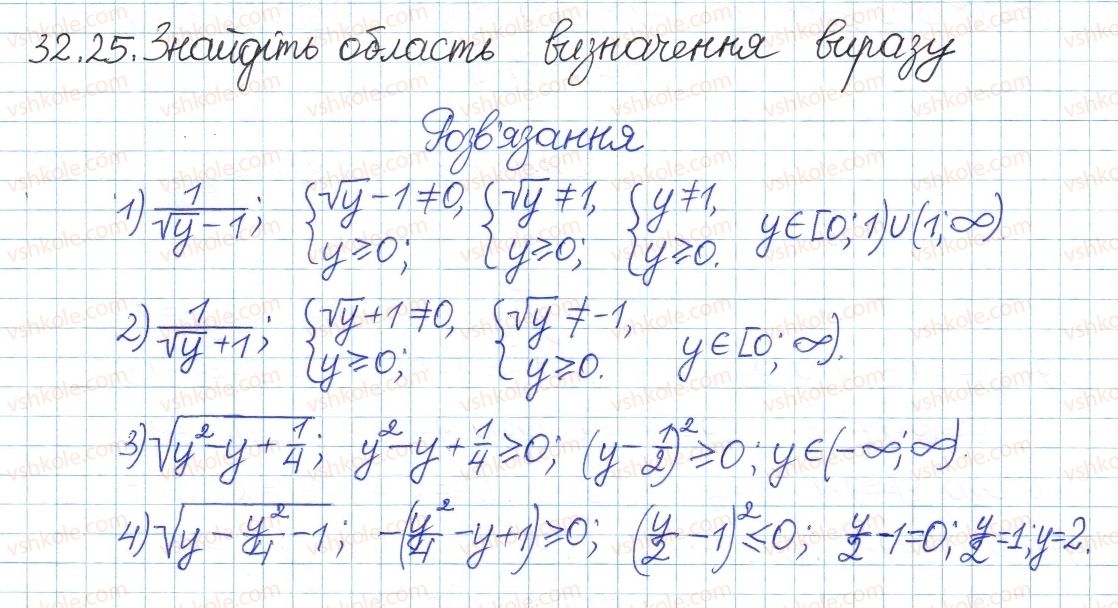 32.25. Знайдіть область визначення виразу
Розв'язання
1) 1/(√y − 1); {√y − 1 ≠ 0, y ≥ 0; {√y ≠ 1, y ≥ 0; {y ≠ 1, y ≥ 0. y ∈ [0; 1) ∪ (1; ∞).
2) 1/(√y + 1); {√y + 1 ≠ 0, y ≥ 0; {√y ≠ −1, y ≥ 0. y ∈ [0; ∞).
3) √(y² − y + 1/4); y² − y + 1/4 ≥ 0; (y − 1/2)² ≥ 0; y ∈ (−∞; ∞).
4) √(y − y²/4 − 1); −(y²/4 − y + 1) ≥ 0; (y/2 − 1)² ≤ 0; y/2 − 1 = 0; y/2 = 1; y = 2.
vshkole.com